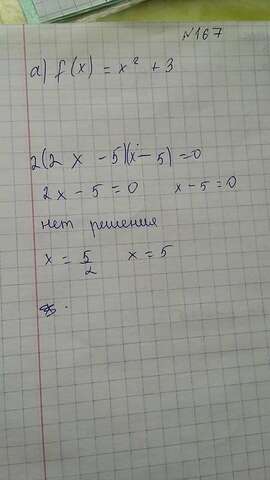 №167
а) f(x) = x² + 3
2(2x - 5)(x - 5) = 0
2x - 5 = 0 x - 5 = 0
нет решения
x = 5/2 x = 5